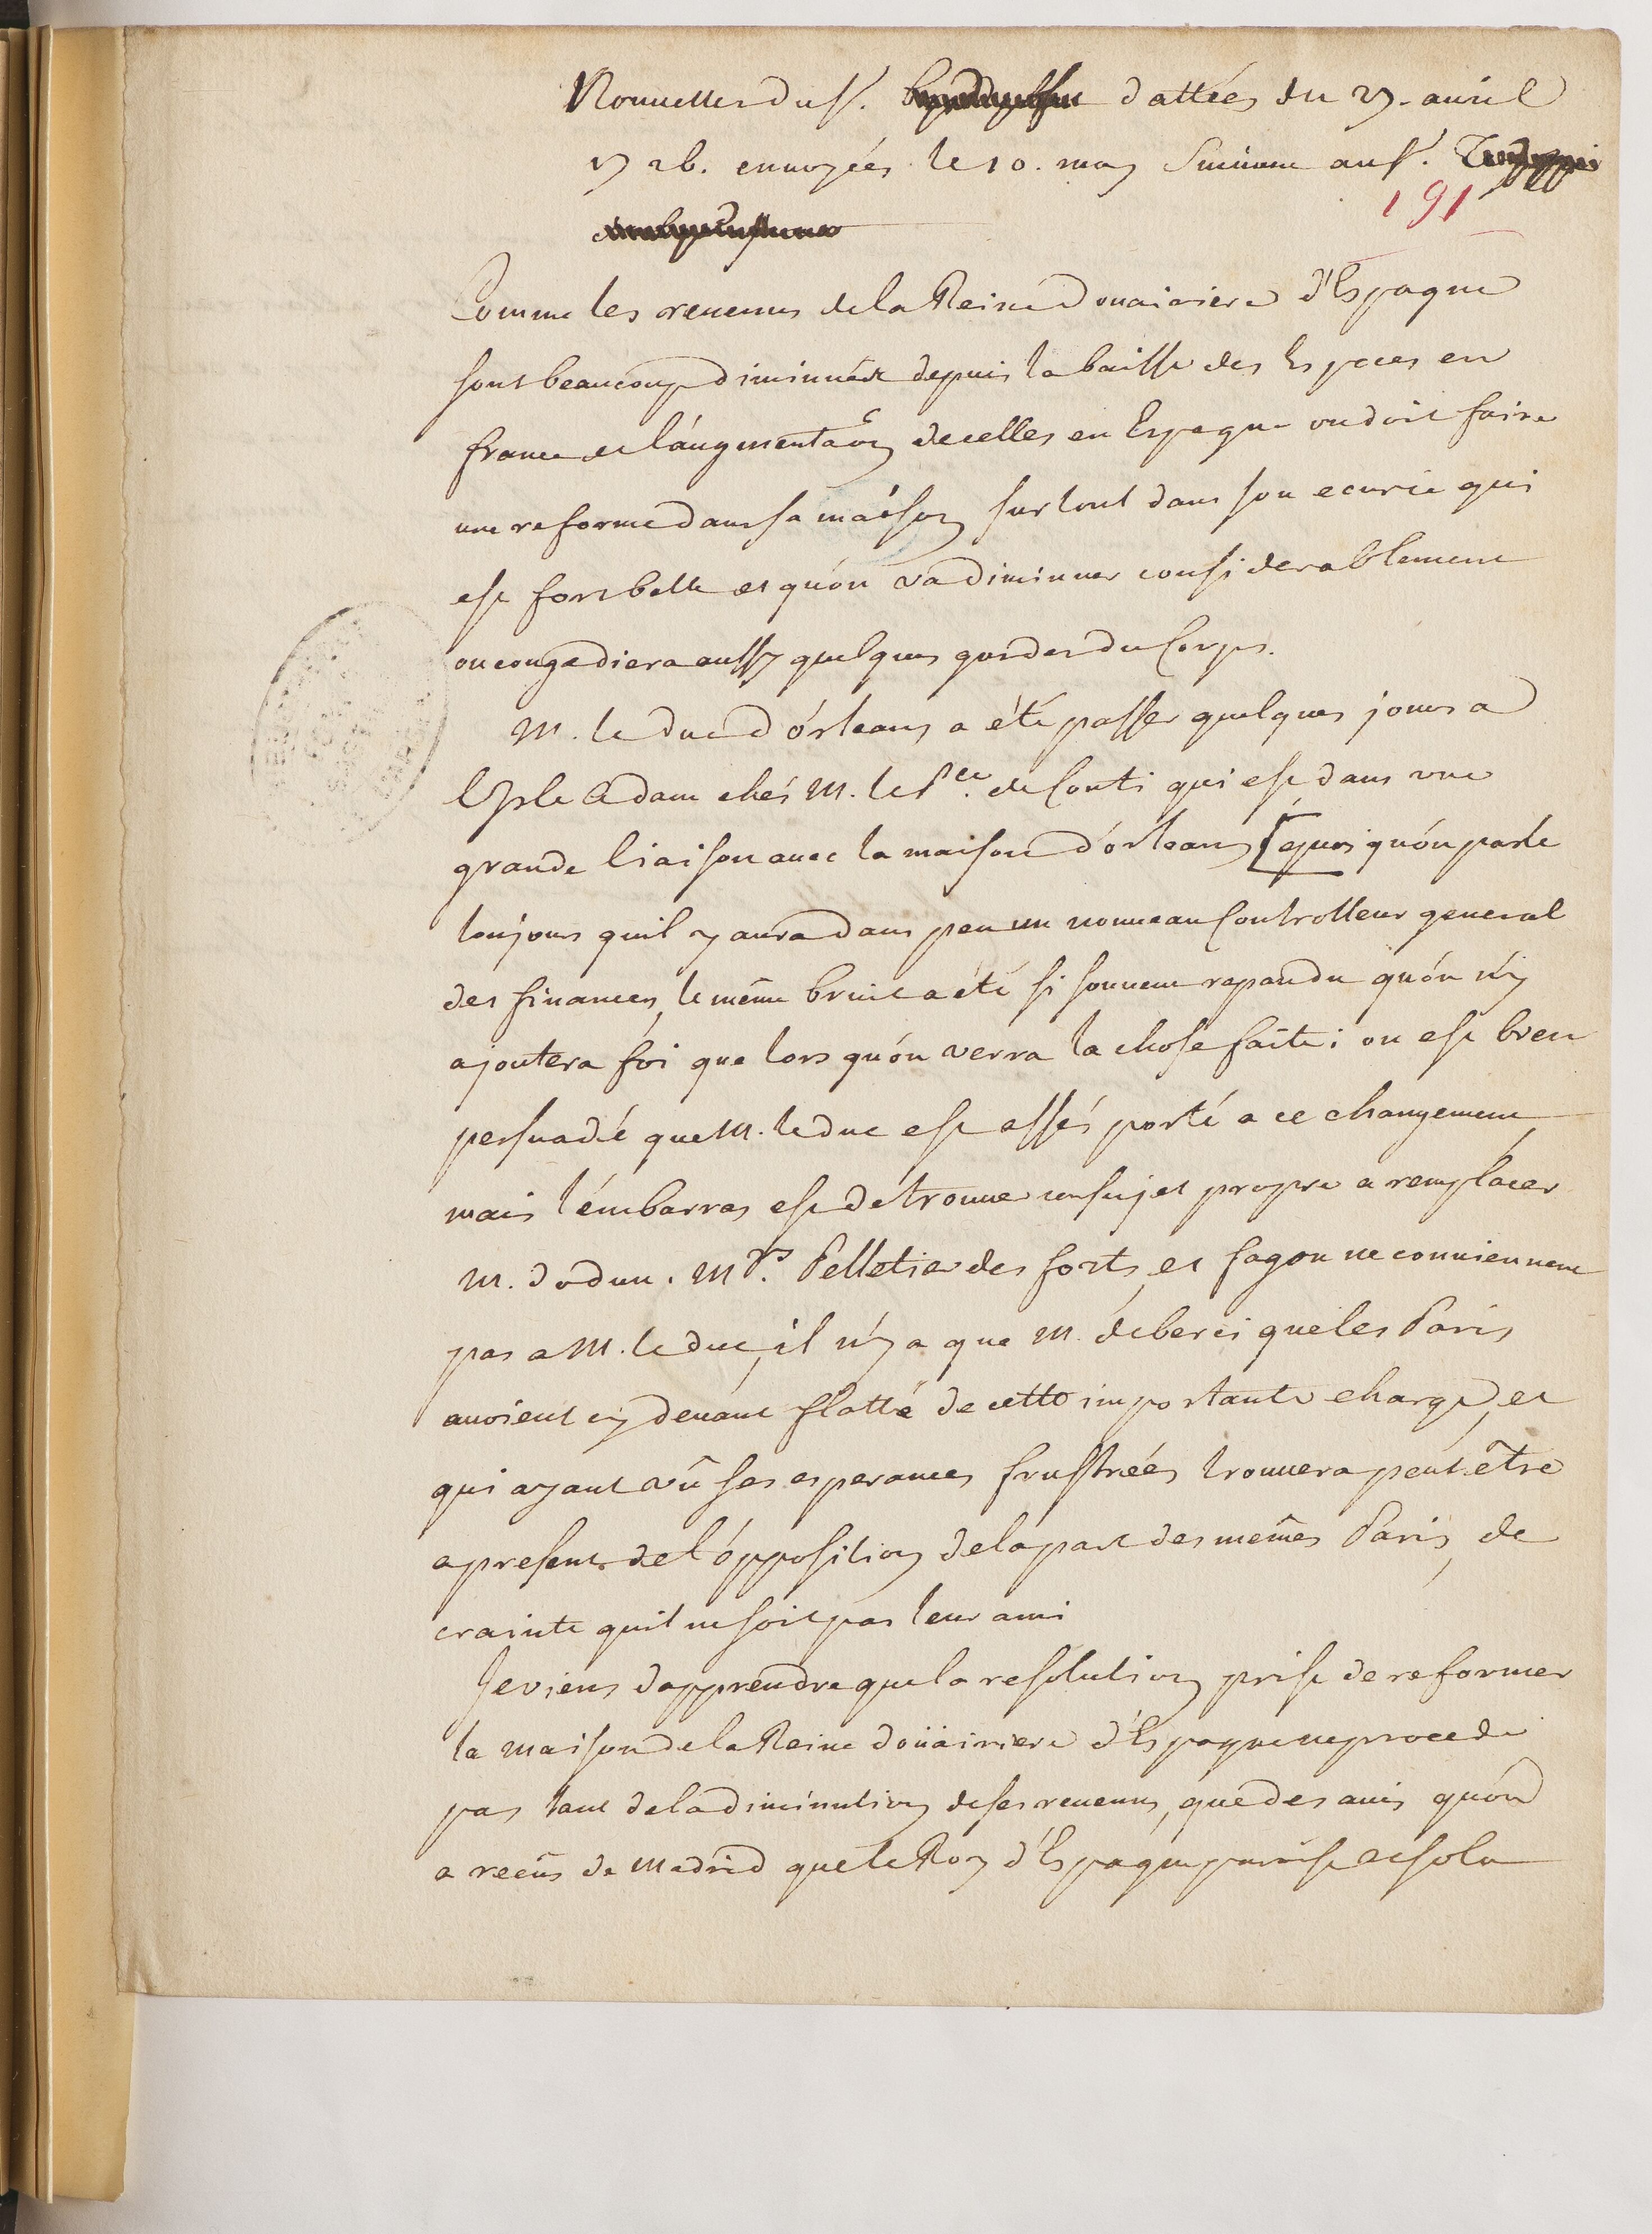 Nouuelles du Sr. dattées du 27. auril
1726. enuoyées le 10. may Suiuant au Sr.
191
Comme les reuenus de la Reine Douairiere d'Espagne
sont beaucoup diminuées depuis la baisse des Especes en
france et l'augmentaon de celles en Espagne on doit faire
une reforme dans sa maison surtout dans son ecurie qui
est fort belle et qu'on va diminuer considerablement
on congediera aussy quelques gardes du Corps.
M. le Duc d'orleans a été passer quelques jours a
L'Isle Adam chés M. le Pce. de Conti qui est dans une
grande liaison auec la maison d'orleans [quoi qu'on parle
toujours quil y aura dans peu un nouueau Controlleur general
des finances, le même bruit a été si souuent repandu qu'on n'y
ajoutera foi que lors qu'on verra la chose faite: on est bien
persuadé que M. le duc est assés porté a ce changement
mais l'émbarras est de trouuer un sujet propre a remplacer
M. dodun. Mrs. Pelletier des forts, et fagon ne conuiennent
pas a M. le duc, il n'y a que M. de berci que les Paris
auoient cy deuant flatté de cette importante charge, et
qui ayant vû ses esperances frustrées trouuera peut être
a present de l'ópposition de la part des mêmes Paris, de
crainte quil ne soit pas leur ami
Je viens d'apprendre que la resolution prise de reformer
la maison de la Reine doüairiere d'Espagne ne procede
pas tant de la diminution de ses reuenus, que des auis qu'on
a reçûs de Madrid que le Roy d'Espagne paroist resolu